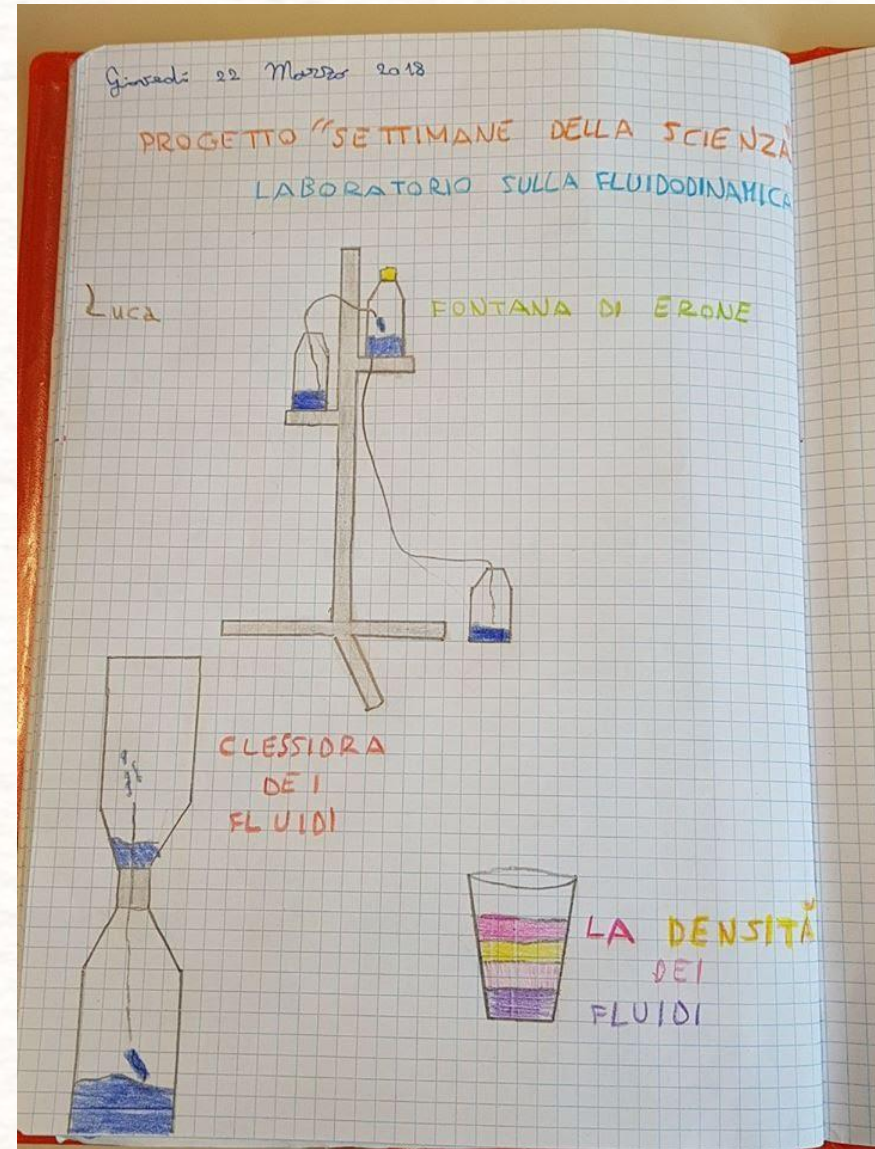 Giovedì 22 Marzo 2018
PROGETTO "SETTIMANE DELLA SCIENZA
LABORATORIO SULLA FLUIDODINAMICA
Luca
FONTANA DI ERONE
CLESSIDRA
DEI
FLUIDI
LA DENSITÀ
DEI
FLUIDI